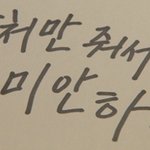 처만 줘서
미안하